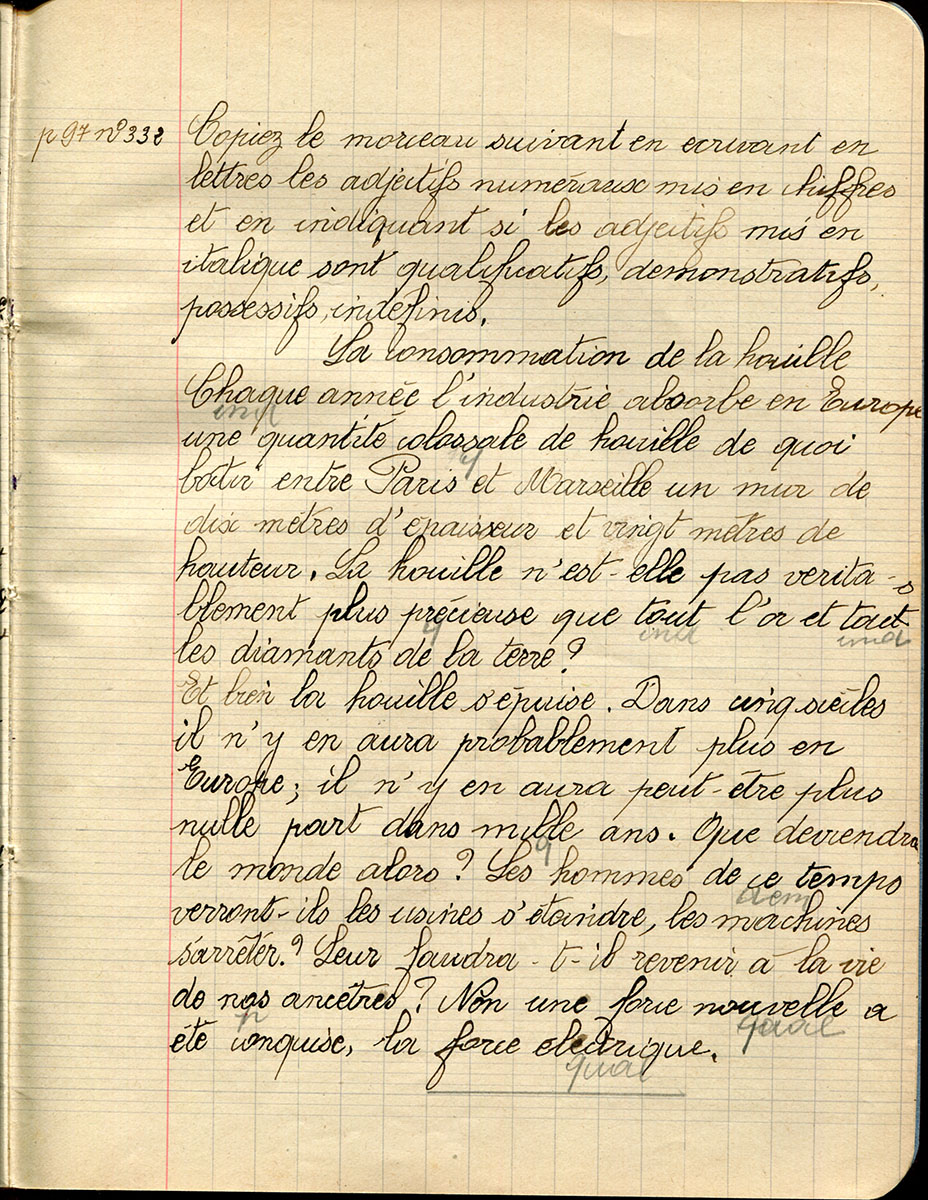 p 97 nº 332
Copiez le morceau suivant en ecrivant en
lettres les adjectifs numéraux mis en chiffres
et en indiquant si les adjectifs mis en
italique sont qualificatifs, demonstratifs,
possessifs, indéfinis.
La consommation de la houille
Chaque année l'industrie absorbe en Europe
ind
une quantité colossale de houille de quoi
q
bâtir entre Paris et Marseille un mur de
dix mètres d'épaisseur et vingt mètres de
hauteur. La houille n'est-elle pas verita-
blement plus précieuse que tout l'or et tout s
q ind ind
les diamants de la terre ?
Et bien la houille s'épuise. Dans cinq siècles
il n'y en aura probablement plus en
Europe ; il n'y en aura peut-être plus
nulle part dans mille ans. Que deviendra
q
le monde alors ? Les hommes de ce temps
dem
verront-ils les usines s'éteindre, les machines
s'arrêter ? Leur faudra-t-il revenir à la vie
de nos ancêtres ? Non une force nouvelle a
p qual
été conquise, la force electrique.
qual